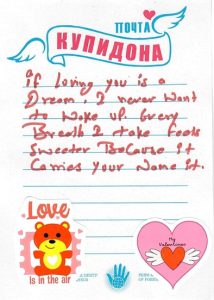 ПОЧТА
КУПИДОНА
if Loving you is a
Dream, I never want
to wake up. Every
Breath I take feels
Sweeter Because it
Carries your Name it.
Love
is in the air
My
Valentines